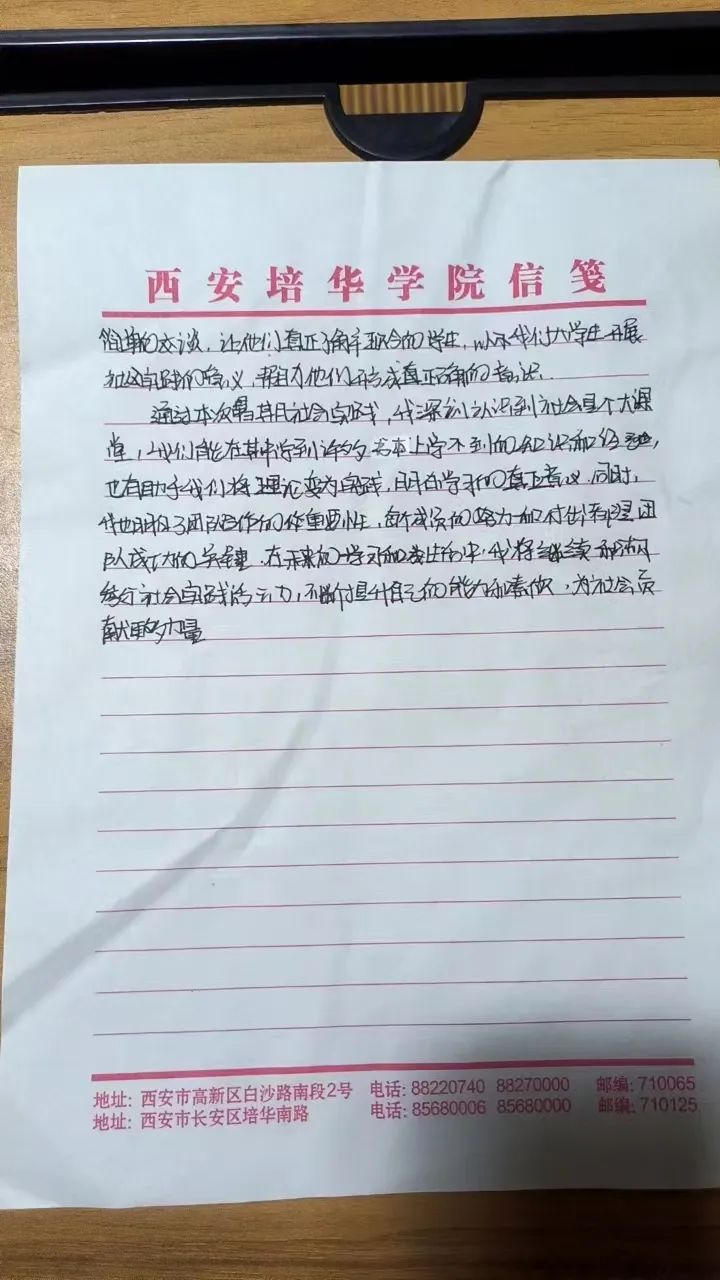 西安培华学院信笺
简单的交谈,让他们真正了解 社会的学生,以及我们大学生开展
社区实践的意义,帮助他们形成真正确的意识.
通过本次暑期社会实践,我深刻认识到社会是个大课
堂,我们能在其中学到许多书本上学不到的知识和经验,
也有助于我们将理论变为实践,明白学习的真正意义.同时,
我也明白了团队合作的重要性,每个成员的努力和付出都是团
队成功的关键.在未来的学习和生活中,我将继续
社会实践的 力,不断提升自己的能力和素质,为社会贡
献更多力量
地址: 西安市高新区白沙路南段2号 电话: 88220740 88270000 邮编: 710065
地址: 西安市长安区培华南路 电话: 85680006 85680000 邮编: 710125